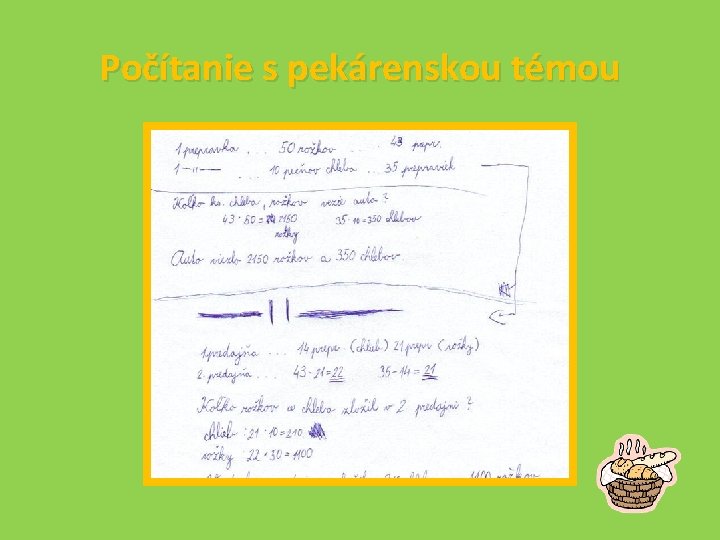 Počítanie s pekárenskou témou
1 prepravka . . . 50 rožkov . . . 43 prepr.
1 —"— . . . 10 pecňov chleba . . . 35 prepraviek
Koľko ks. chleba, rožkov vezie auto?
43 · 50 = 2150 35 · 10 = 350 chlebov
rožky
Auto viezlo 2150 rožkov a 350 chlebov
1 predajňa . . . 14 prepr. (chlieb) 21 prepr (rožky)
2. predajňa . . . 43 - 21 = 22 35 - 14 = 21
Koľko rožkov a chleba zložil v 2 predajni?
chlieb : 21 · 10 = 210
rožky : 22 · 50 = 1100
1100 rožkov